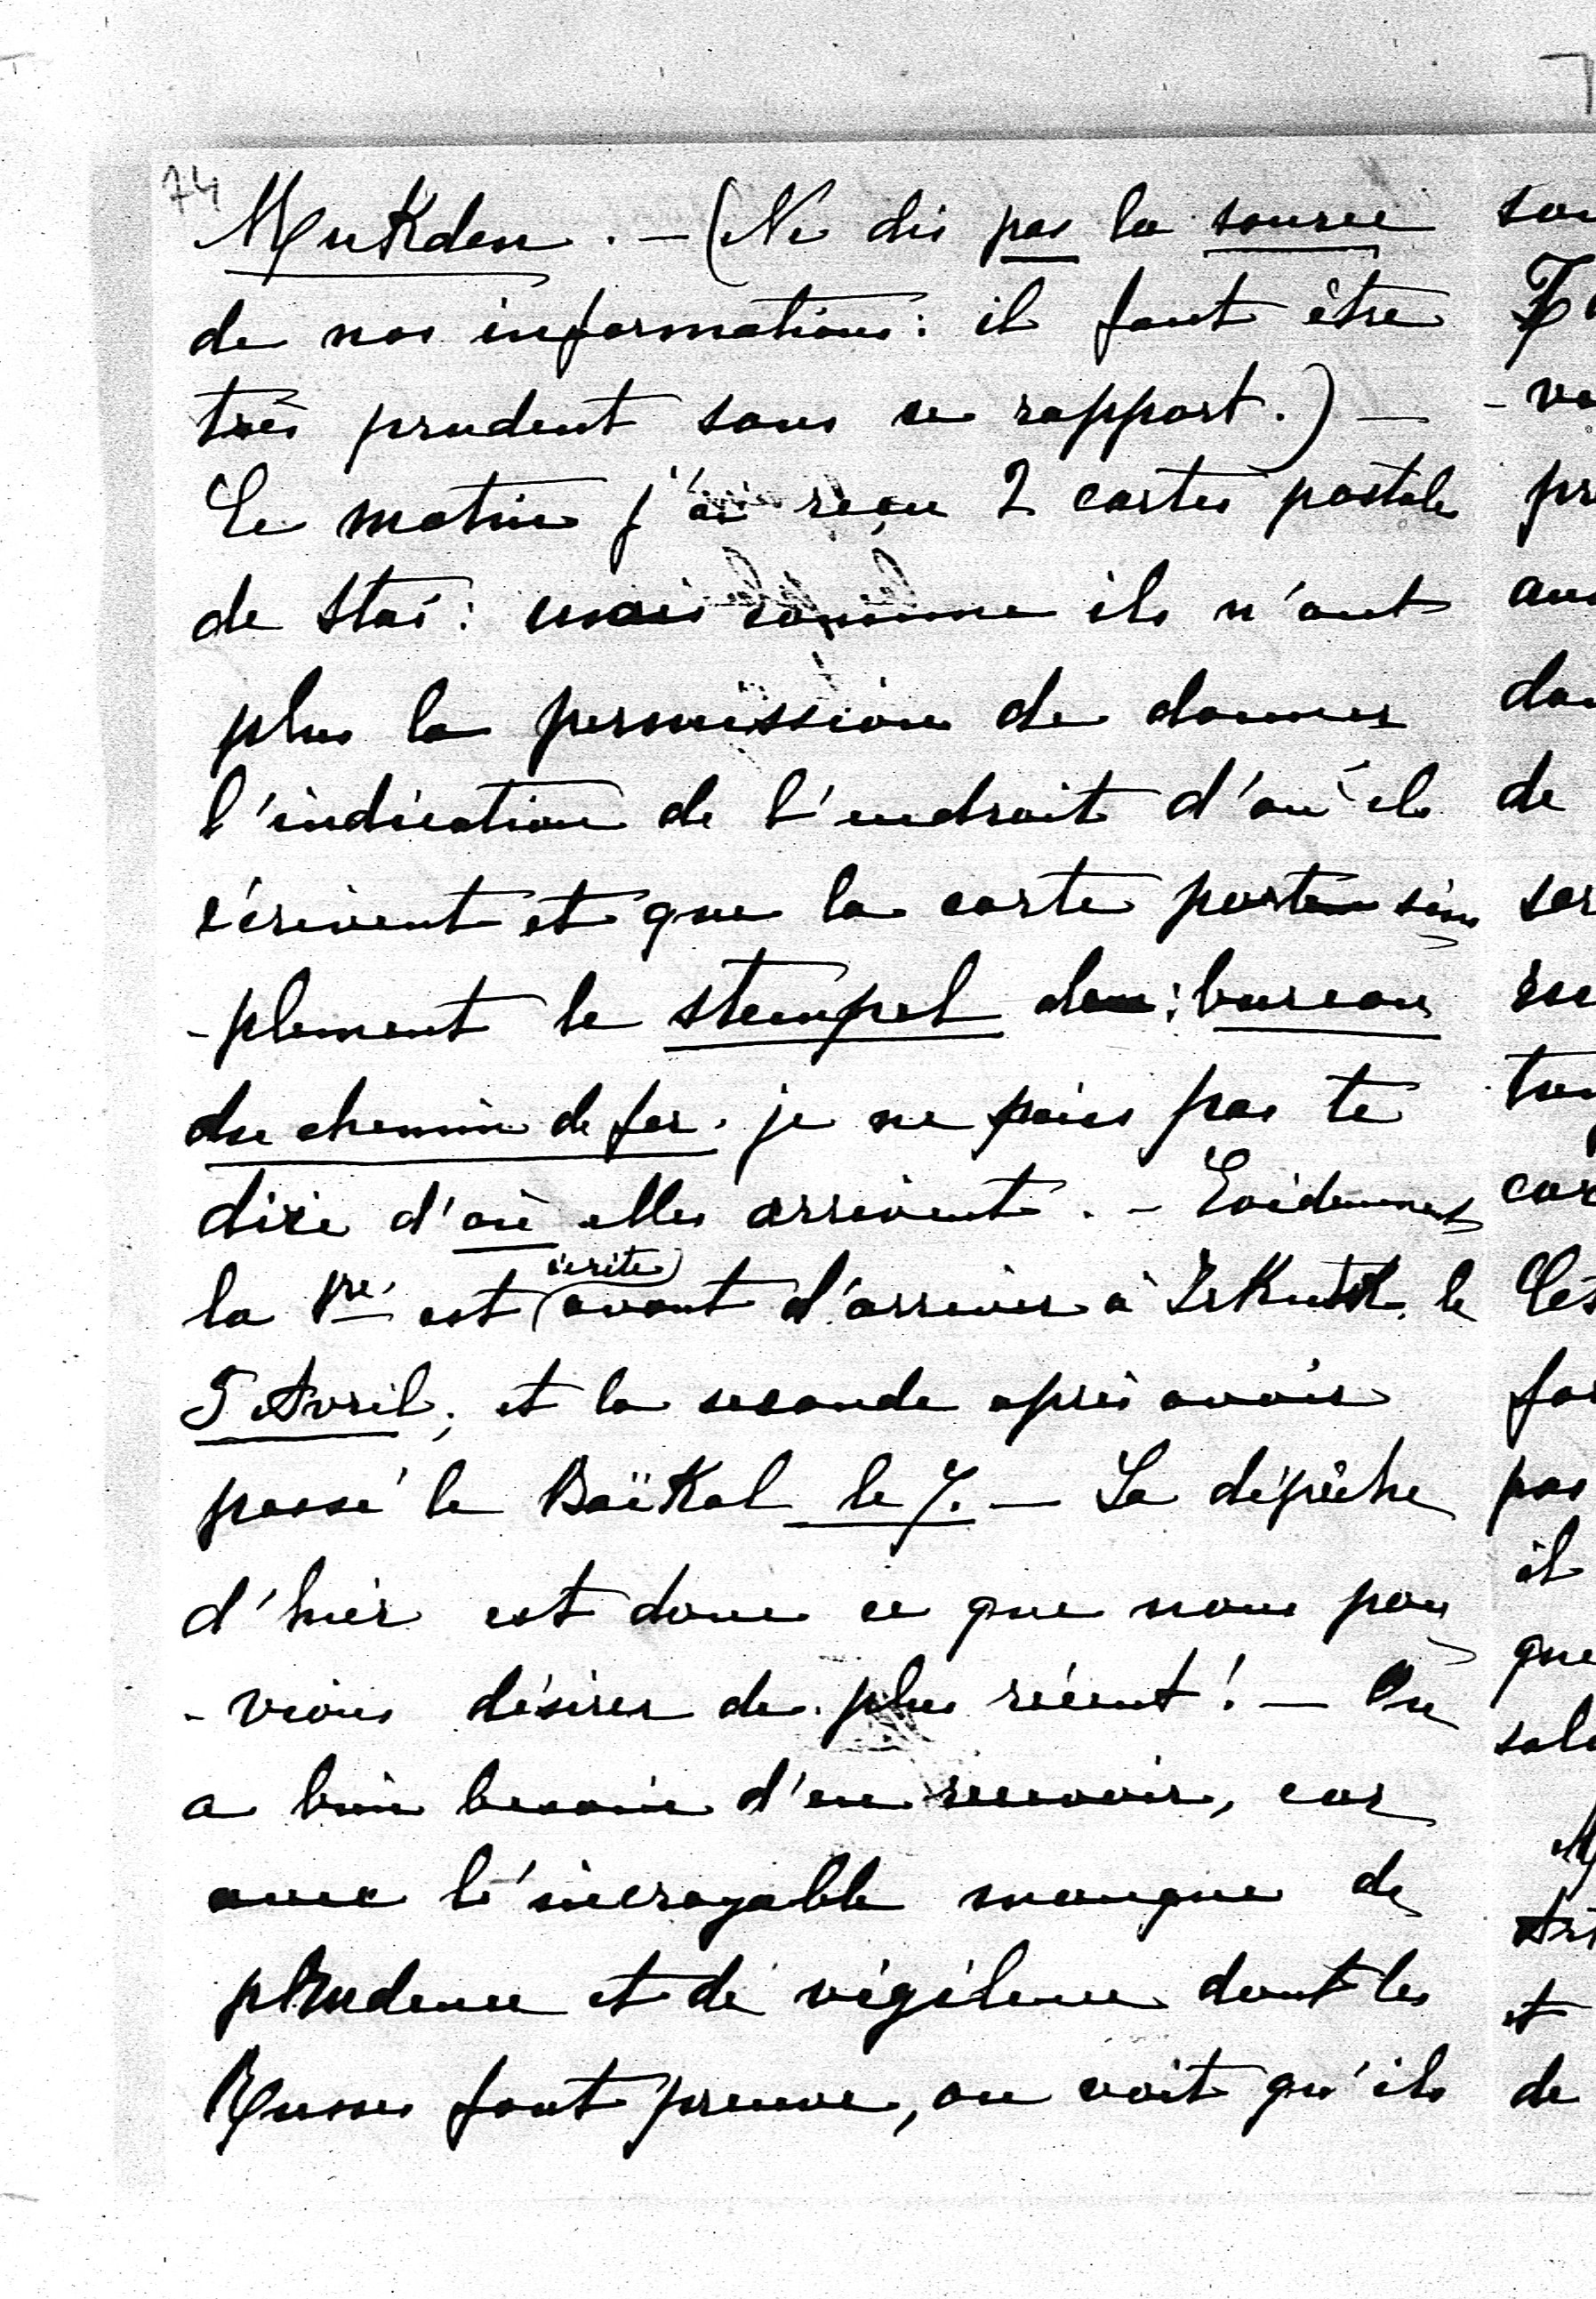 74
Mukden. — (Ne dis pas la source
de nos informations: il faut être
très prudent sous ce rapport.) —
Ce matin j'ai reçu 2 cartes postales
de Staś: mais comme ils n'ont
plus la permission de donner
l'indication de l'endroit d'où ils
écrivent et que la carte porte sim
-plement le stempel du: bureau
du chemin de fer. je ne puis pas te
dire d'où elles arrivent. - Evidemment
écrite
la 1re est avant d'arriver à Irkutsk, le
5 Avril, et la seconde après avoir
passé le Baïkal le 7. — La dépêche
d'hier est donc ce que nous pou
-vions désirer de plus récent! — On
a bien besoin d'en recevoir, car
avec l'incroyable manque de
prudence et de vigilence dont les
Russes font preuve, on voit qu'ils
pas
il
que
et
de